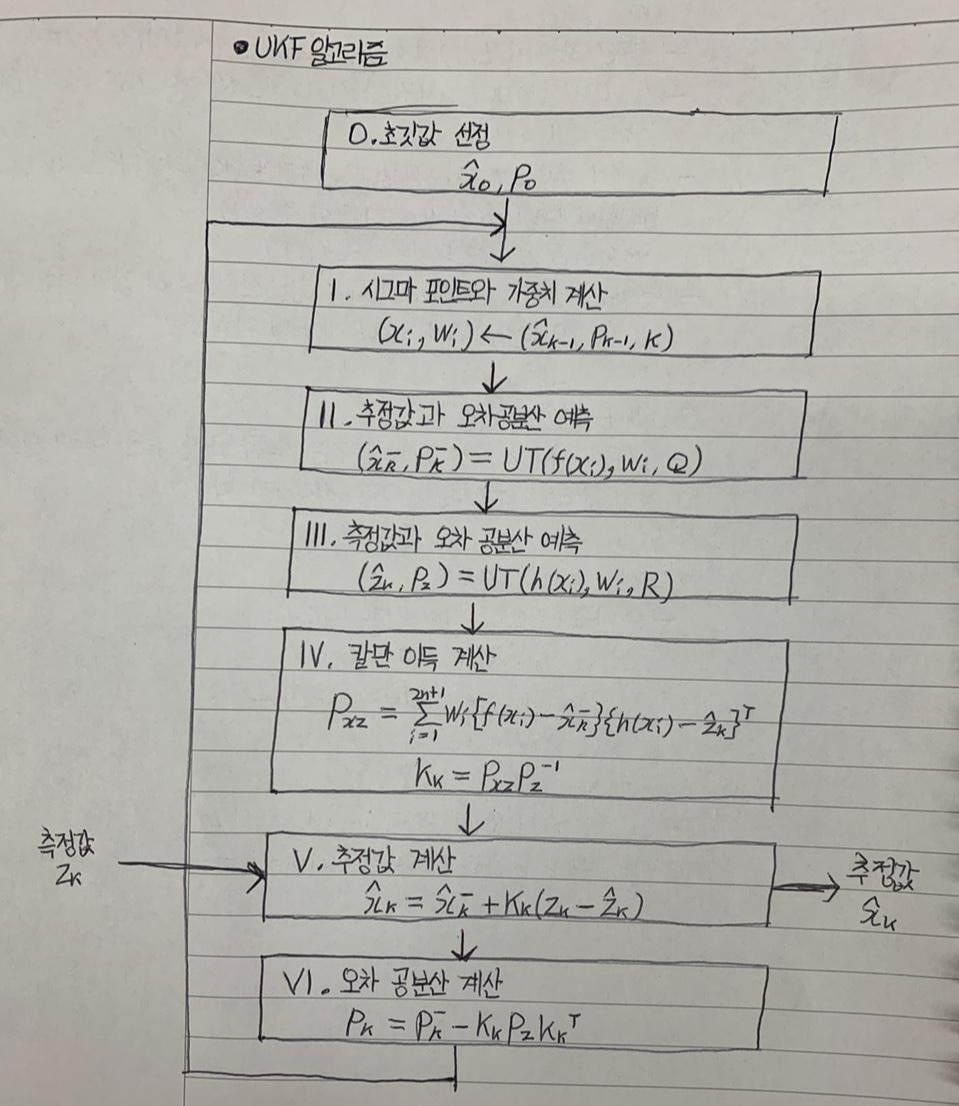 • UKF 알고리즘
0. 초깃값 선정
x̂₀, P₀
I. 시그마 포인트와 가중치 계산
(xᵢ, Wᵢ) ← (x̂ₖ₋₁, Pₖ₋₁, K)
II. 추정값과 오차공분산 예측
(x̂ₖ⁻, Pₖ⁻) = UT(f(xᵢ), Wᵢ, Q)
III. 측정값과 오차 공분산 예측
(ẑₖ, P_z) = UT(h(xᵢ), Wᵢ, R)
IV. 칼만 이득 계산
P_xz = Σ_{i=1}^{2n+1} Wᵢ{f(xᵢ) - x̂ₖ⁻}{h(xᵢ) - ẑₖ}ᵀ
Kₖ = P_xz P_z⁻¹
측정값
zₖ
V. 추정값 계산
x̂ₖ = x̂ₖ⁻ + Kₖ(zₖ - ẑₖ)
추정값
x̂ₖ
VI. 오차 공분산 계산
Pₖ = Pₖ⁻ - Kₖ P_z Kₖᵀ